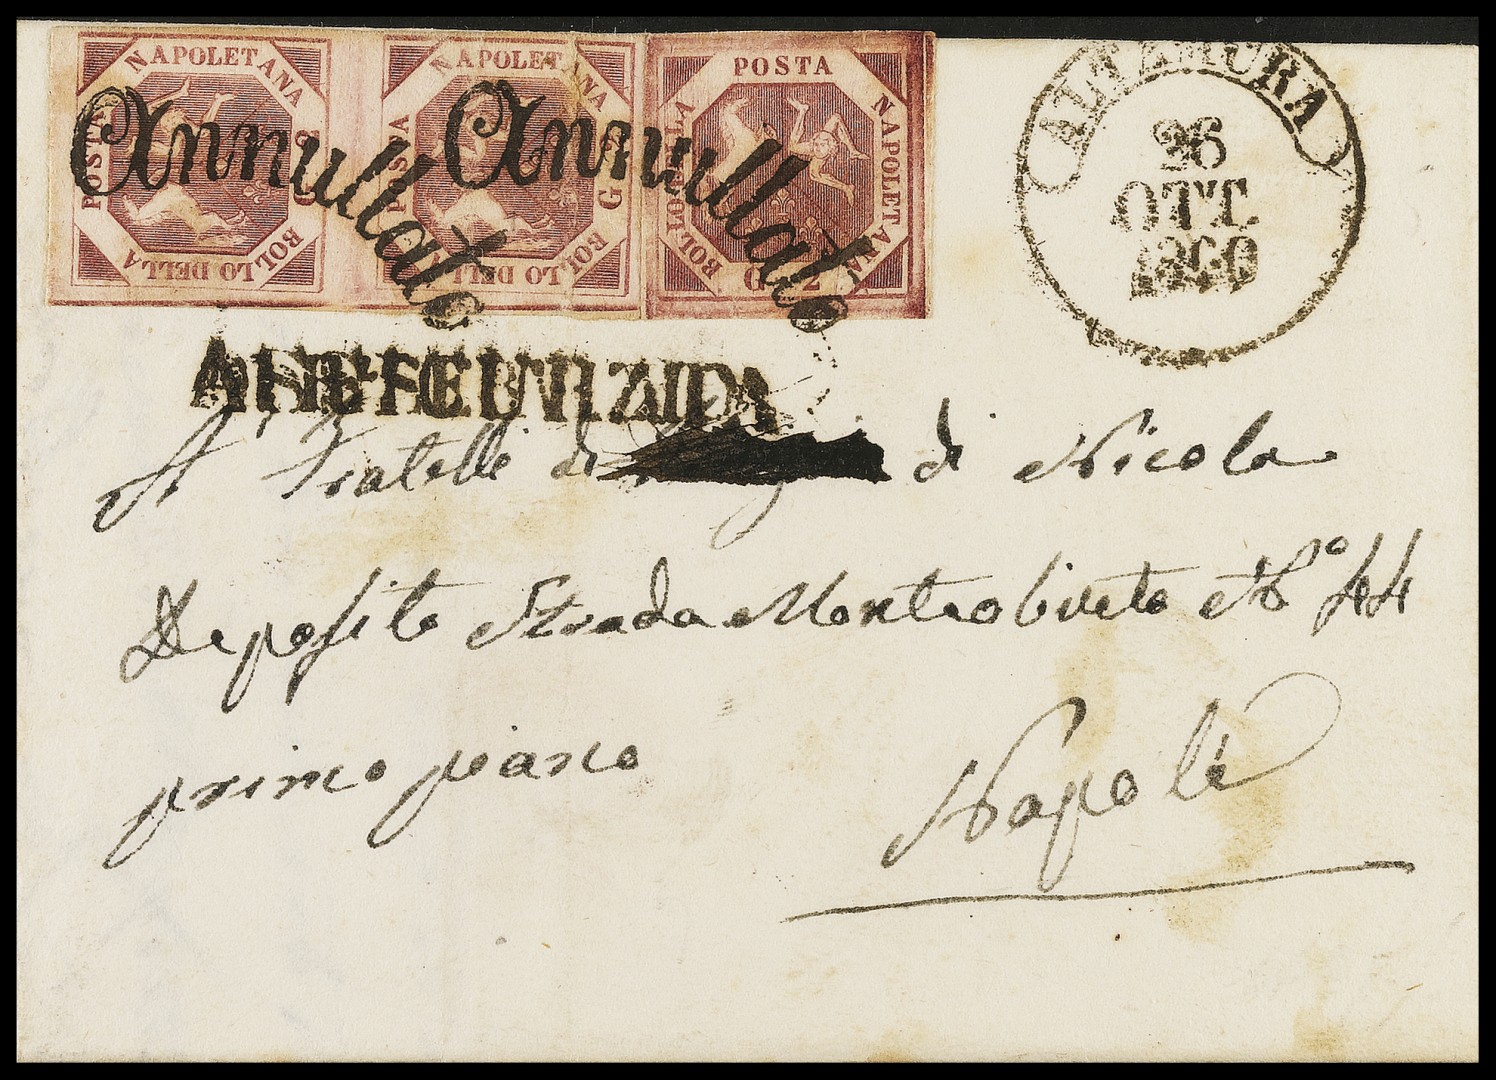 POSTA NAPOLETANA G 5 BOLLO DELLA
POSTA NAPOLETANA G BOLLO DELLA
BOLLO DELLA POSTA NAPOLETANA G 2
Annullato Annullato
ALTAMURA
26
OTT.
1860
A' Fratelli di di Nicola
Deposito Strada Monteoliveto N° 44
primo piano
Napoli